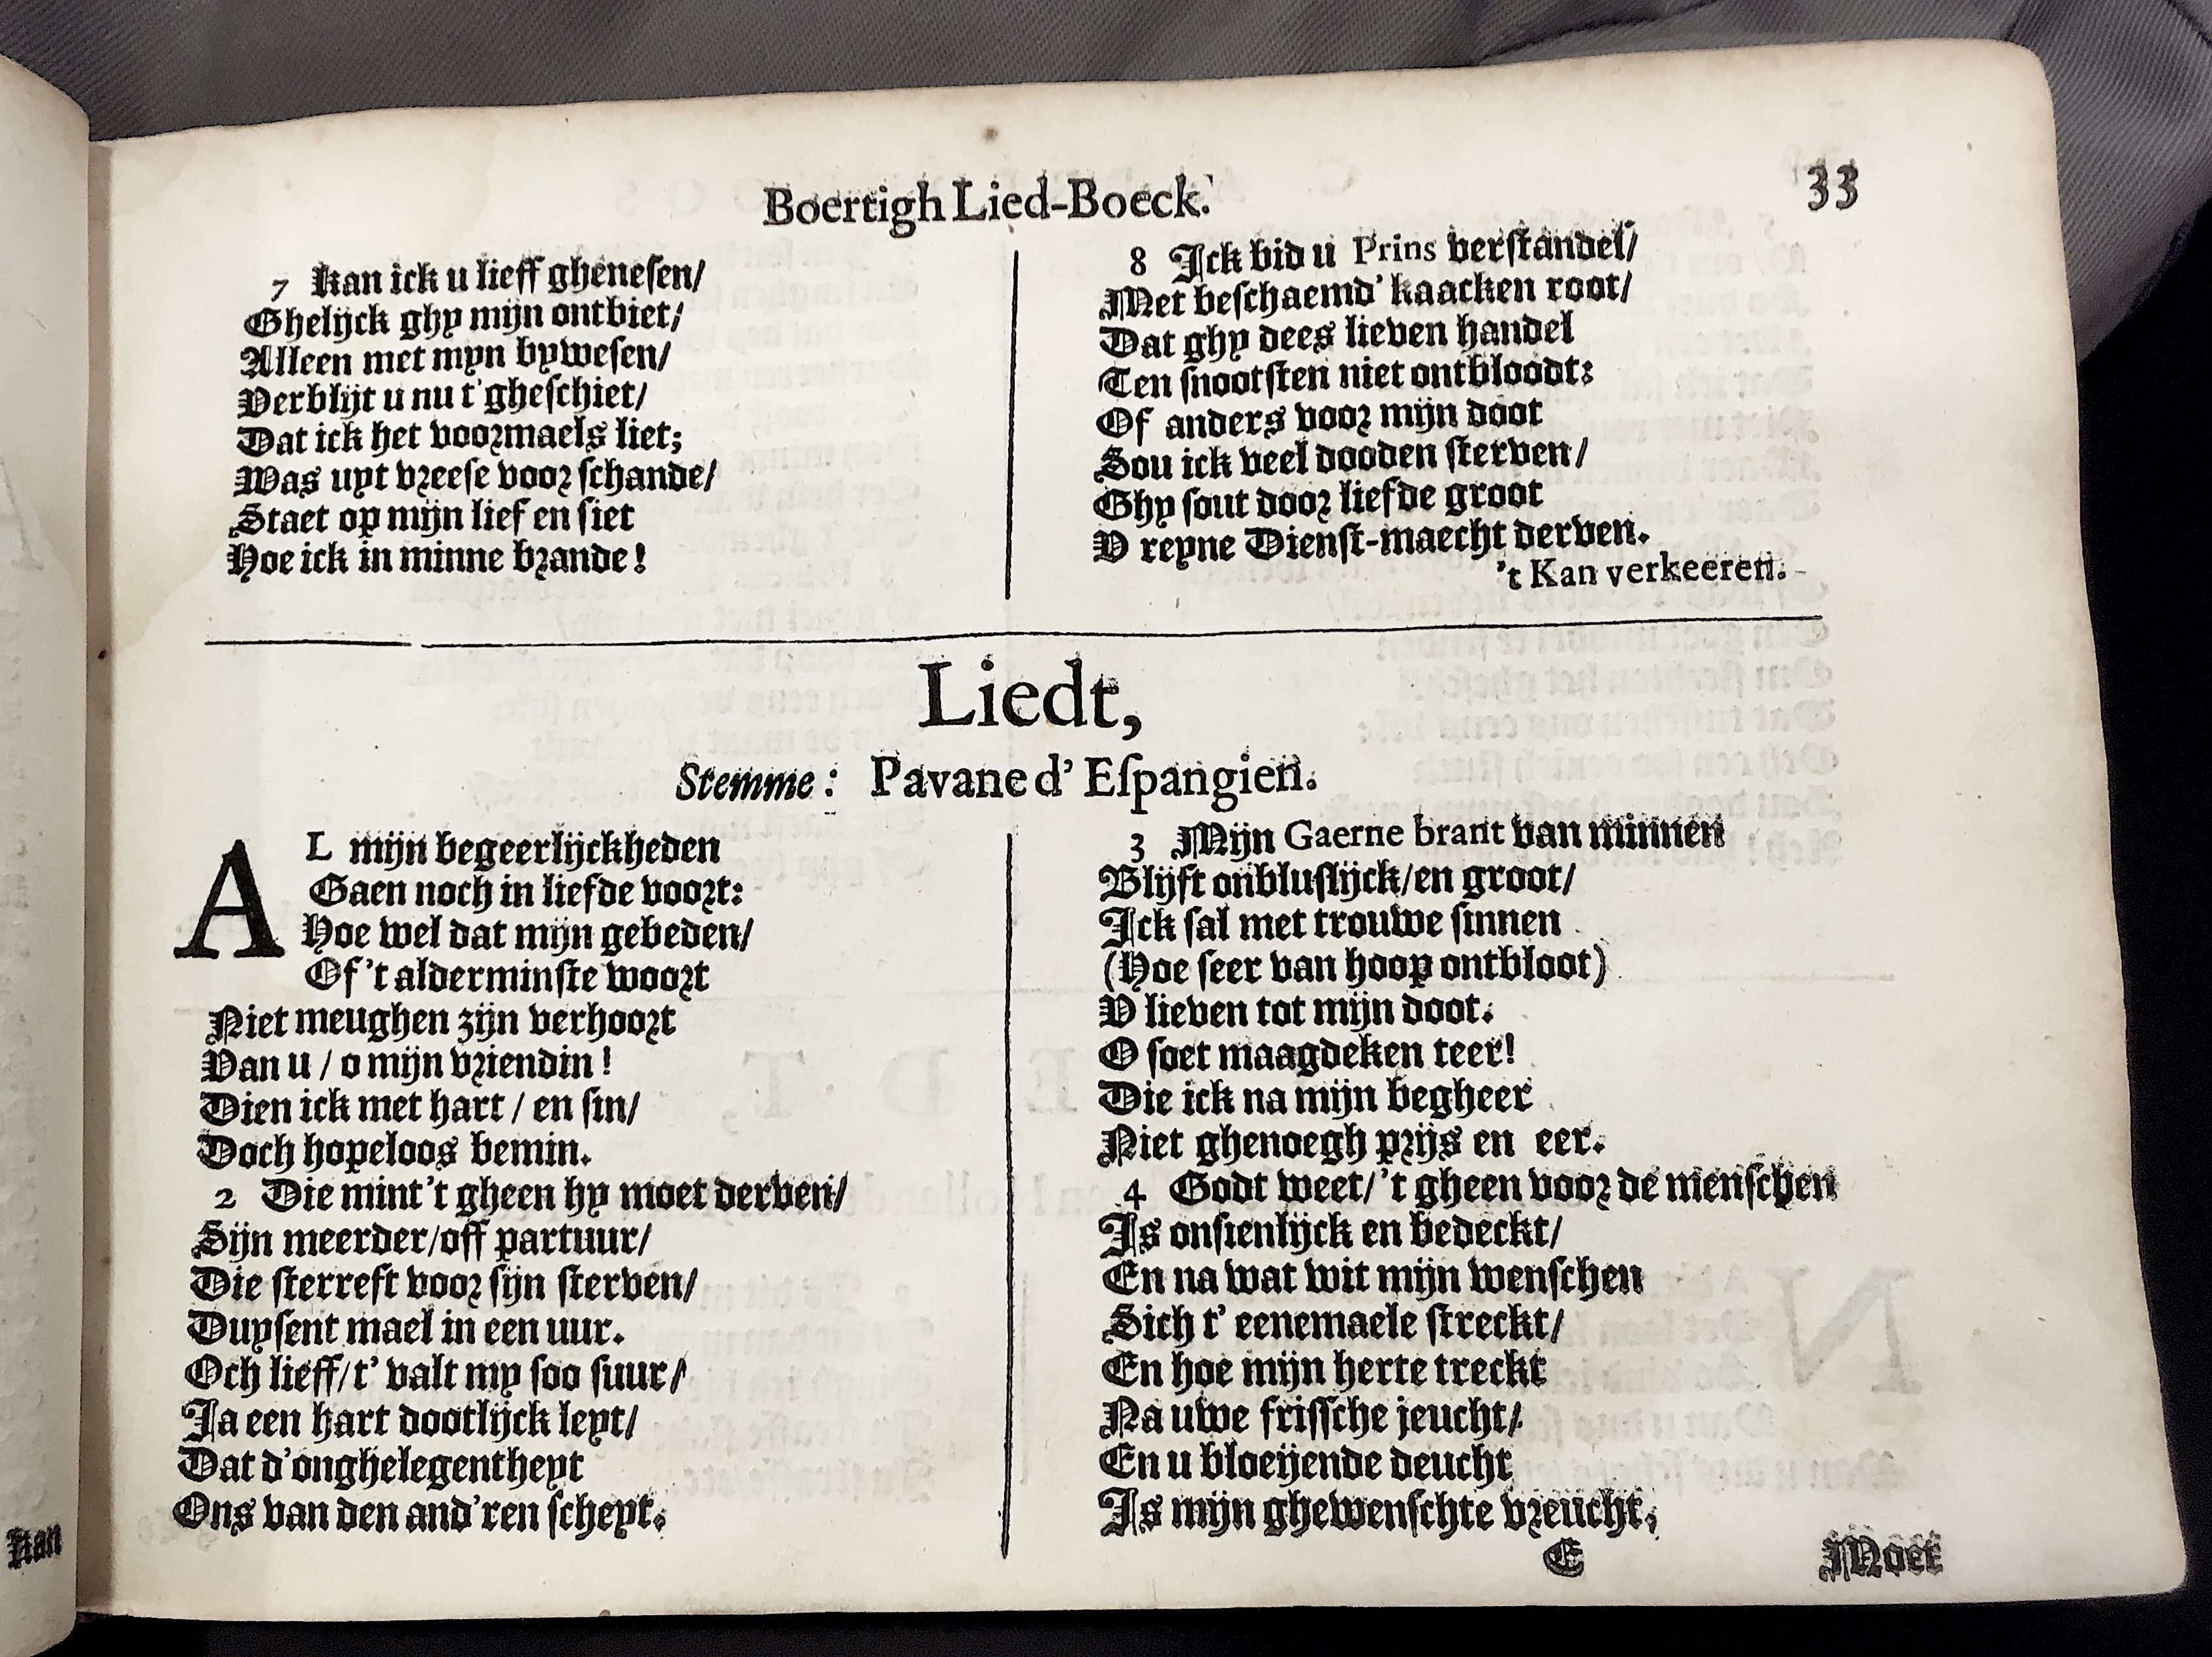 Boertigh Lied-Boeck.
33
7 Kan ick u lieff ghenesen/
Ghelijck ghy mijn ontbiet/
Alleen met myn bywesen/
Verblijt u nu t'gheschiet/
Dat ick het voormaels liet;
Was uyt vreese voor schande/
Staet op mijn lief en siet
Hoe ick in minne brande!
8 Ick bid u Prins verstandel/
Met beschaemd' kaacken root/
Dat ghy dees lieven handel
Ten snootsten niet ontbloodt:
Of anders voor mijn doot
Sou ick veel dooden sterven/
Ghy sout door liefde groot
V reyne Dienst-maecht derven.
't Kan verkeeren.
Liedt,
Stemme: Pavane d' Espangien.
AL mijn begeerlijckheden
Gaen noch in liefde voort:
Hoe wel dat mijn gebeden/
Of 't alderminste woort
Niet meughen zijn verhoort
Van u / o mijn vriendin!
Dien ick met hart / en sin/
Doch hopeloos bemin.
2 Die mint 't gheen hy moet derven/
Sijn meerder/off partuur/
Die sterreft voor sijn sterven/
Duysent mael in een uur.
Och lieff/t' valt my soo suur/
Ja een hart dootlijck leyt/
Dat d'onghelegentheyt
Ons van den and'ren scheyt.
3 Mijn Gaerne brant van minnen
Blijft onbluslijck/en groot/
Ick sal met trouwe sinnen
(Hoe seer van hoop ontbloot)
V lieven tot mijn doot.
O soet maagdeken teer!
Die ick na mijn begheer
Niet ghenoegh prijs en eer.
4 Godt weet/'t gheen voor de menschen
Is onsienlijck en bedeckt/
En na wat wit mijn wenschen
Sich t' eenemaele streckt/
En hoe mijn herte treckt
Na uwe frissche jeucht/
En u bloeijende deucht
Is mijn ghewenschte vreucht.
E
Moet
Kan